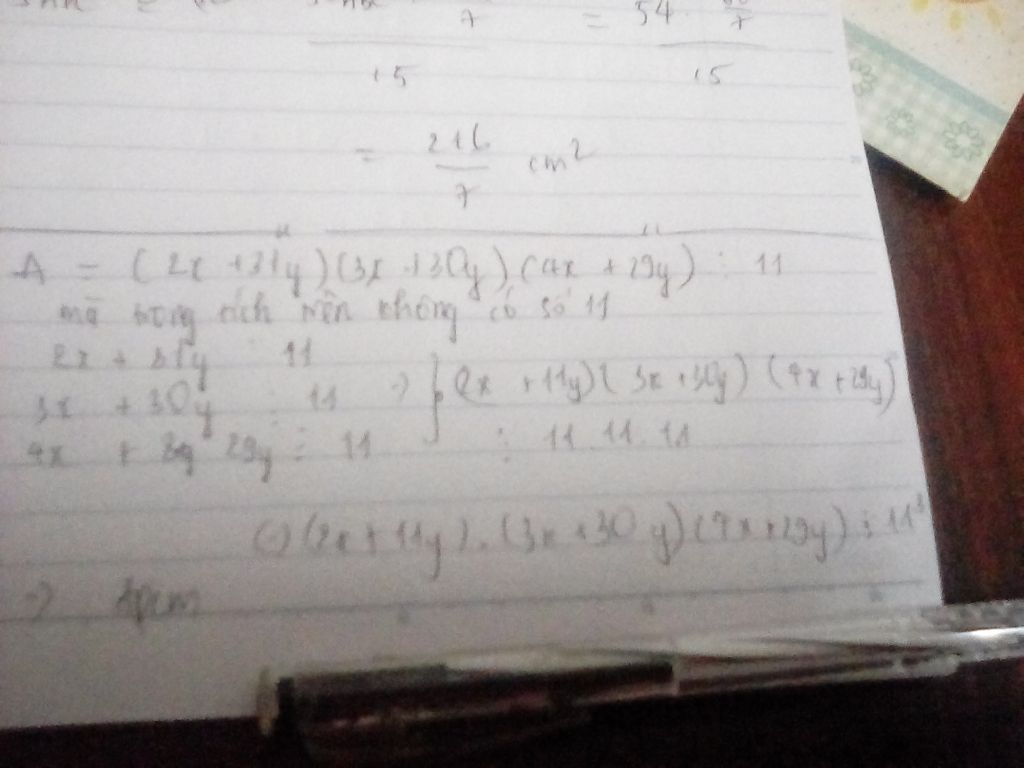 = 54.
7
15
15
= 216/7 cm²
A = (2x + 31y)(3x + 30y)(4x + 29y) ⋮ 11
mà trong tích trên không có số 11
2x + 31y ⋮ 11
3x + 30y ⋮ 11 => } (2x + 11y)(3x + 30y)(4x + 29y)
4x + 29y ⋮ 11 ⋮ 11.11.11
(=) (2x + 11y).(3x + 30y)(4x + 29y) ⋮ 11³
=> đpcm